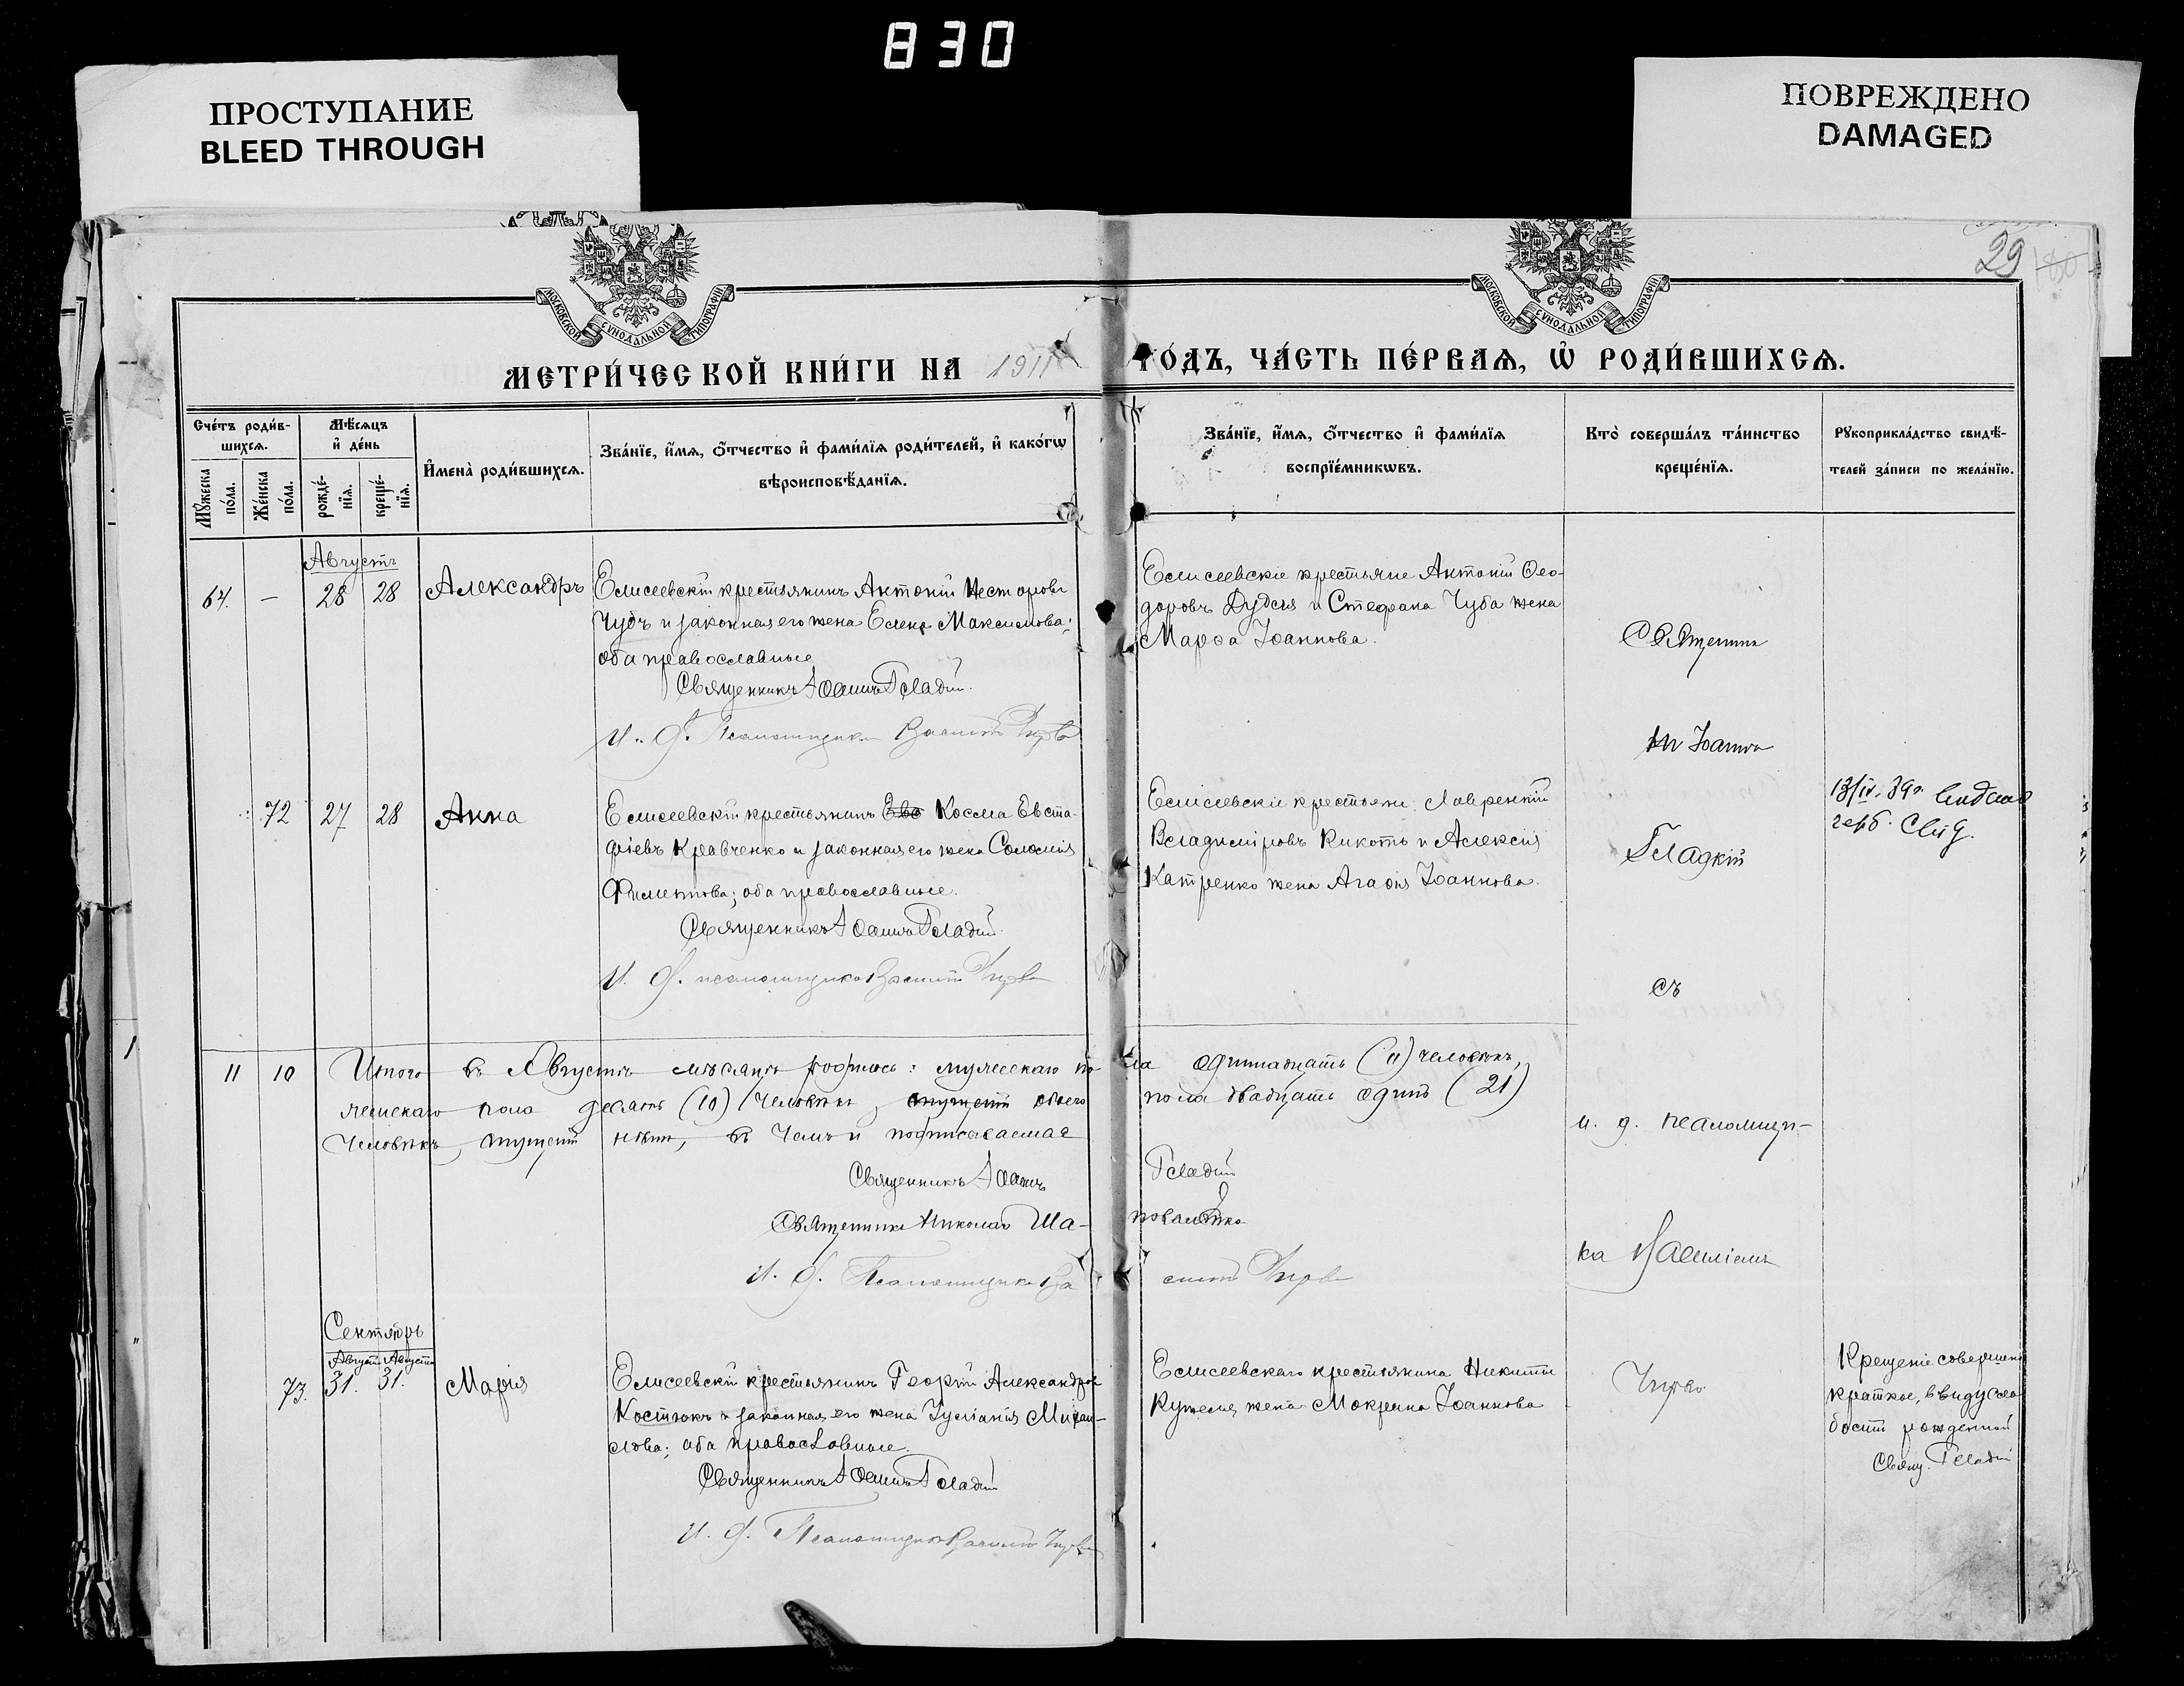 830
ПРОСТУПАНИЕ
BLEED THROUGH
ПОВРЕЖДЕНО
DAMAGED
МОСКОВСКОЙ СѴНОДАЛЬНОЙ ТИПОГРАФІИ
МОСКОВСКОЙ СѴНОДАЛЬНОЙ ТИПОГРАФІИ
29
МЕТРИ́ЧЕСКОЙ КНИ́ГИ НА 1911 ГО́ДЪ, ЧА́СТЬ ПЕ́РВАѦ, Ѡ҆ РОДИ́ВШИХСѦ.
Сче́тъ роди́в-
шихсѧ.
Мꙋ́жеска
по́ла.
Же́нска
по́ла.
Мѣ́сѧцъ
и҆ де́нь
рожде́-
нїѧ.
креще́-
нїѧ.
И҆мена̀ роди́вшихсѧ.
Зва́нїе, и҆́мѧ, ѻ҆́тчество и҆ фами́лїѧ роди́телей, и҆ како́гѡ
вѣроисповѣ́данїѧ.
Зва́нїе, и҆́мѧ, ѻ҆́тчество и҆ фами́лїѧ
воспрїе́мникѡвъ.
Кто̀ соверша́лъ та́инство
креще́нїѧ.
Рꙋкоприкла́дство свидѣ́-
телей за́писи по жела́нїю.
Августъ
64. — 28 28 Александръ
Елисеевскій крестьянинъ Антоній Несторовъ
Чубъ и законная его жена Елена Максимова;
оба православные
Священникъ Іоаннъ Гладкій.
И. д. Псаломщика Василій Чирво
Елисеевскіе крестьяне Антоній Ѳео-
доровъ Дудся и Стефана Чуба жена
Марѳа Іоаннова.
Священни
комъ Іоанно
72 27 28 Анна
Елисеевскій крестьянинъ Ево Косма Евста-
фіевъ Кравченко и законная его жена Соломія
Филиппова; оба православные.
Священникъ Іоаннъ Гладкій.
И. д. псаломщика Василій Чирво
Елисеевскіе крестьяне: Лаврентій
Владиміровъ Кикоть и Алексія
Катренко жена Агафія Іоаннова.
Гладкій
13/IV. 39г.
съ
11 10 Итого въ Августѣ мѣсяцѣ родилось: мужескаго по-ла одиннадцать (11) человѣкъ,
женскаго пола десять (10) человѣкъ, обоего пола двадцать одинъ (21)
человѣкъ, въ чемъ и подписываемся
Священникъ Іоаннъ Гладкій
Священникъ Николай Ша-поваленко
И. д. Псаломщика Ва-силій Чирво
и. д. псаломщи-
ка Василіемъ
Чирво
Сентябрь
Августъ Августа
73. 31. 31. Марія
Елисеевскій крестьянинъ Георгій Александровъ
Костюкъ и законная его жена Іуліанія Михаи-
лова; оба православные.
Священникъ Іоаннъ Гладкій
И. д. Псаломщика Василій Чирво
Елисеевскаго крестьянина Никиты
Кужеля жена Мокрина Іоаннова
Крещеніе совершено
краткое, ввиду сла-
бости рожденной
Свящ. Гладкій